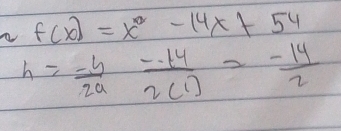 f(x) = x² - 14x + 54
h = -b/2a --14/2(1) = -14/2